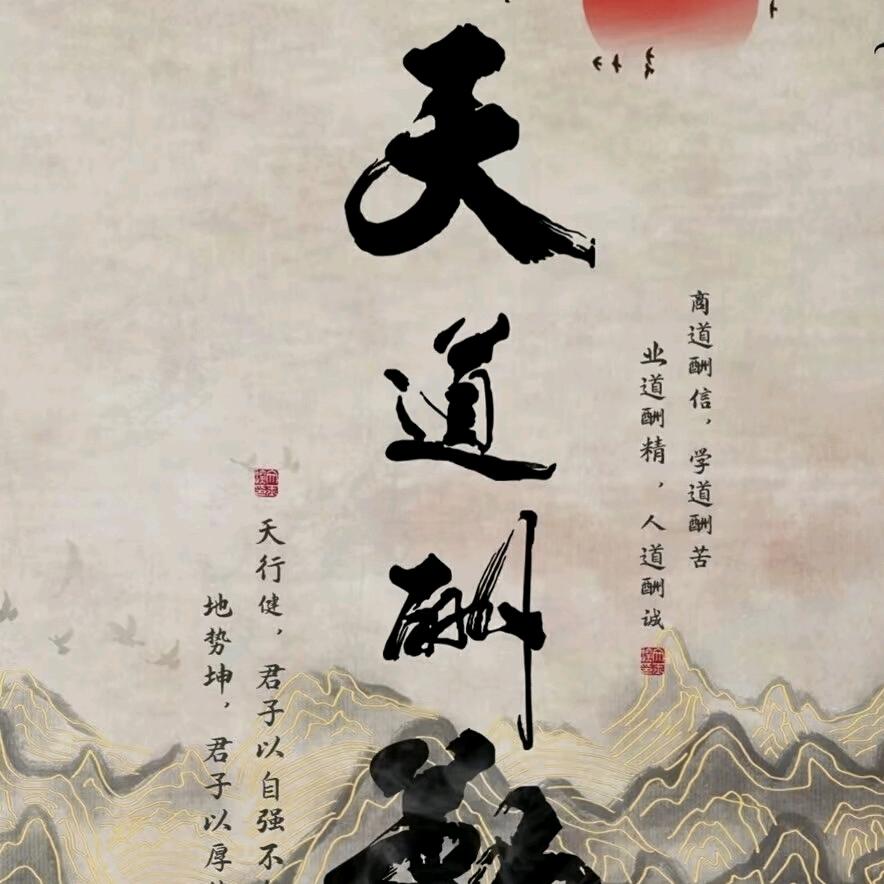 天道酬
商道酬信，学道酬苦
业道酬精，人道酬诚
天行健，君子以自强不
地势坤，君子以厚